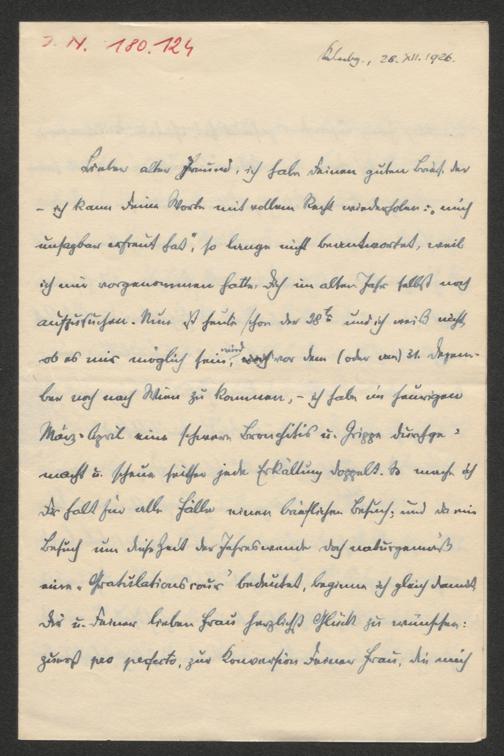 J. N. 180.124
Klbg., 28. XII. 1926.
Lieber alter Freund, ich habe Deinen guten Brief, der
– ich kann Deine Worte mit vollem Recht wiederholen: „mich
unsagbar erfreut hat", so lange nicht beantwortet, weil
ich mir vorgenommen hatte, Dich im alten Jahr selbst noch
aufzusuchen. Nun ist heute schon der 28te und ich weiß nicht,
ob es mir möglich sein wird, vor dem (oder am) 31. Dezem-
ber noch nach Wien zu kommen, – ich habe im heurigen
März-April eine schwere Bronchitis u. Grippe durchge-
macht u. scheue seither jede Erkältung doppelt. So mache ich
Dir halt für alle Fälle einen brieflichen Besuch; und da ein
Besuch um diese Zeit der Jahreswende doch naturgemäß
eine „Gratulationscour" bedeutet, beginne ich gleich damit,
Dir u. Deiner lieben Frau herzlichst Glück zu wünschen:
zuerst pro perfecto, zur Konversion Deiner Frau, die mich